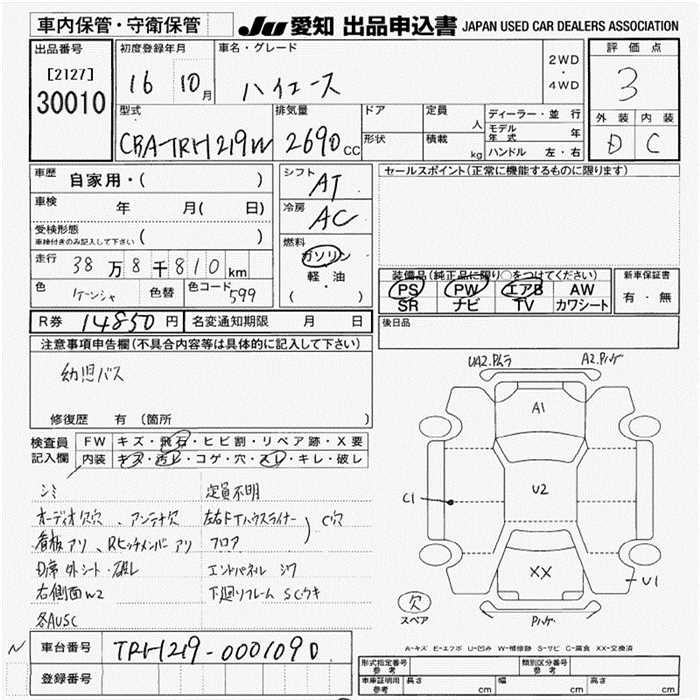 車内保管・守衛保管
JU 愛知 出品申込書 JAPAN USED CAR DEALERS ASSOCIATION
出品番号
[2127]
30010
初度登録年月
16 10月
車名・グレード
ハイエース
2WD
・
4WD
評価点
3
外装 内装
D C
型式
CBA-TRH219W
排気量
2690cc
ドア
形状
定員 人
積載 kg
ディーラー・並行
モデル年式 年
ハンドル 左・右
車歴 自家用・( )
車検 年 月( 日)
受検形態
車検付きのみ記入して下さい ( )
走行 38万8千810km
色 色替 色コード 599
シフト AT
冷房 AC
燃料
ガソリン
軽・油
( )
セールスポイント(正常に機能するものに限ります)
装備品(純正品に限り○をつけてください)
PS PW エアB AW
SR ナビ TV カワシート
新車保証書
有・無
R券 14850円
名変通知期限 月 日
後日品
注意事項申告欄(不具合内容等は具体的に記入して下さい)
幼児バス
修復歴 有 (箇所
検査員記入欄
FW キズ・飛石・ヒビ割・リペア跡・X要
内装 キズ・汚レ・コゲ・穴・スレ・キレ・破レ
シミ
オーディオ欠穴、アンテナ欠
看板アリ、Rヒッチメンバーアリ
D席外シート・破レ
右側面W2
各AUSC
定員不明
左右FTハウスライナー
フロア
C穴
エンドパネルシワ
下廻リフレームSCウキ
UA2.Pムラ A2.Pハゲ
A1
U2
C1
XX
U1
Pハゲ
欠
スペア
A-キズ E-エクボ U-凹み W-補修跡 S-サビ C-腐食 XX-交換済
N
車台番号 TRH219-0001090
登録番号
形式指定番号 参考
類別区分番号 参考
車庫証明用 参考 長さ cm 幅 cm 高さ cm